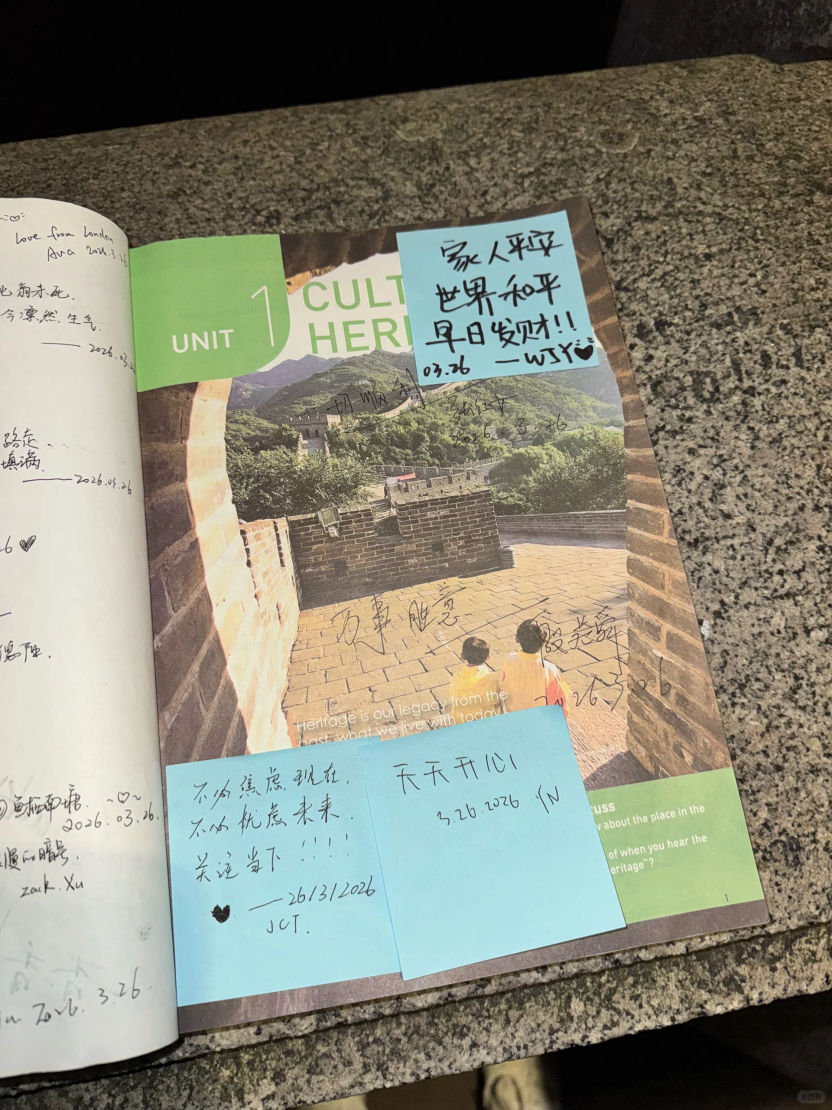 Love from London
Ava 2026.3.26
今凛然生气
—— 2026.03.2
路走...
填满.
——2026.03.26
6 ♥
2026.03.26.
的暗号.
Zack.Xu
2026. 3.26.
UNIT 1
CULT
HERI
家人平安
世界和平
早日发财!!
03.26 —WJY♥
一切顺利
2026.3.26
万事胜意
2026.3.26
Heritage is our legacy from the
past, what we live with today,
不必焦虑现在,
不必忧虑未来.
关注当下 !!!!
♥ ——26/3/2026
JCT.
天天开心
3.26.2026 YN
cuss
about the place in the
of when you hear the
eritage"?
1
小红书